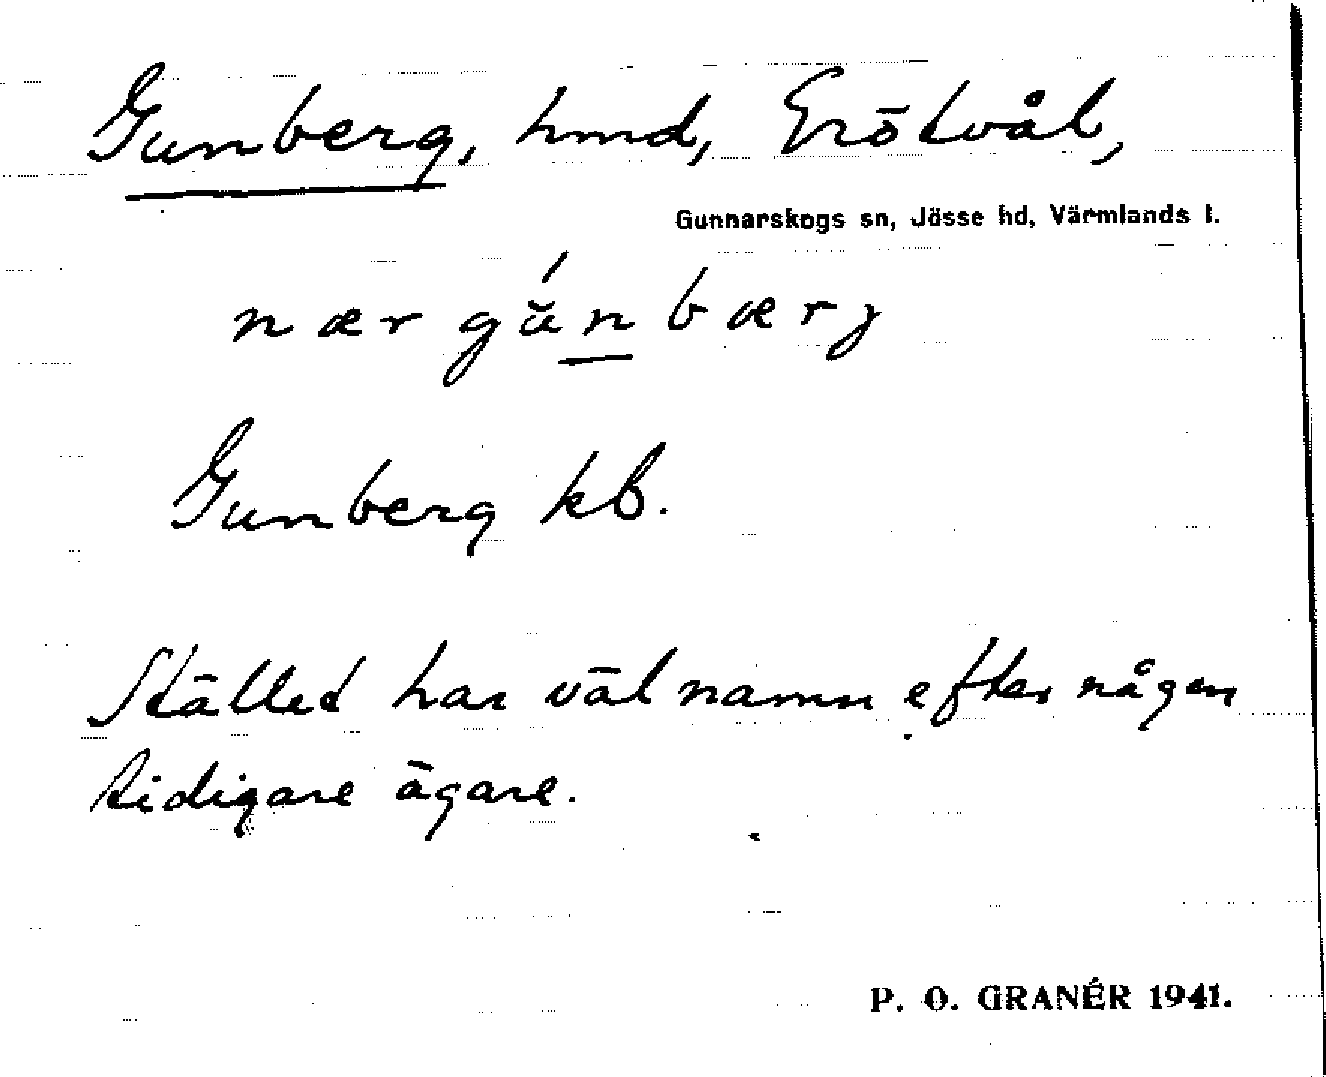 Gunberg, hmd, Grötvål,
Gunnarskogs sn, Jösse hd, Värmlands l.
nær gǘnbærj
Gunberg kb.
Stället har väl namn efter någon
tidigare ägare.
P. O. GRANÉR 1941.